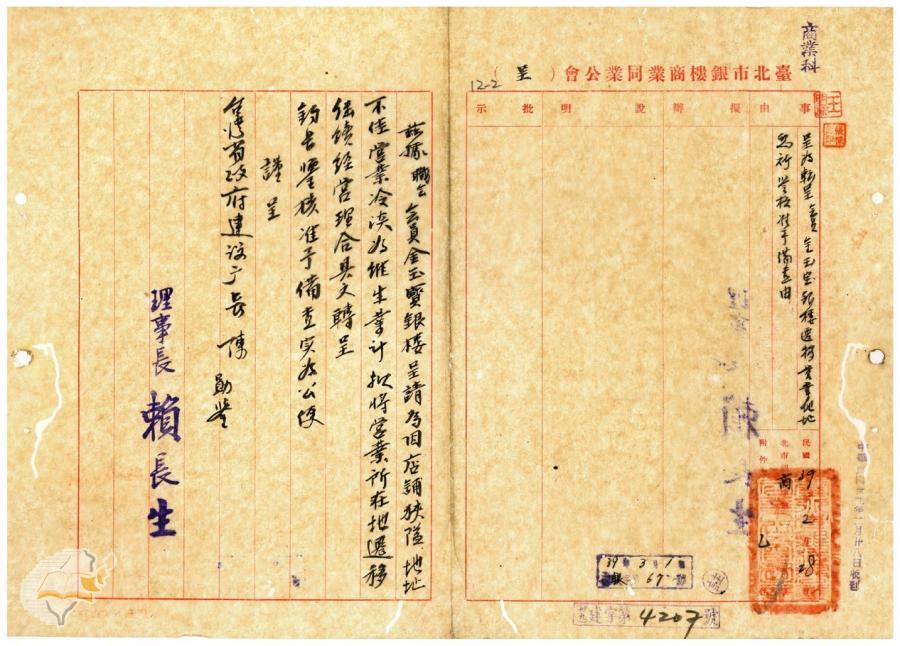 商業科
臺北市銀樓商業同業公會（呈）
12-2
事由
擬辦
說明
批示
呈為轉呈會員金玉寶銀樓遷移營業地址
祈鑒核准予備查由
民國39 2 28
北市 商
附件 乙
39 3 1
67
建字第4207號
茲據職會會員金玉寶銀樓呈請為因店舖狹隘地址
不佳營業冷淡為維生業計擬將營業所在地遷移
繼續經營理合具文轉呈
鈞長鑒核准予備查實為公便
謹呈
臺灣省政府建設厅長陳 勛鑒
理事長賴長生